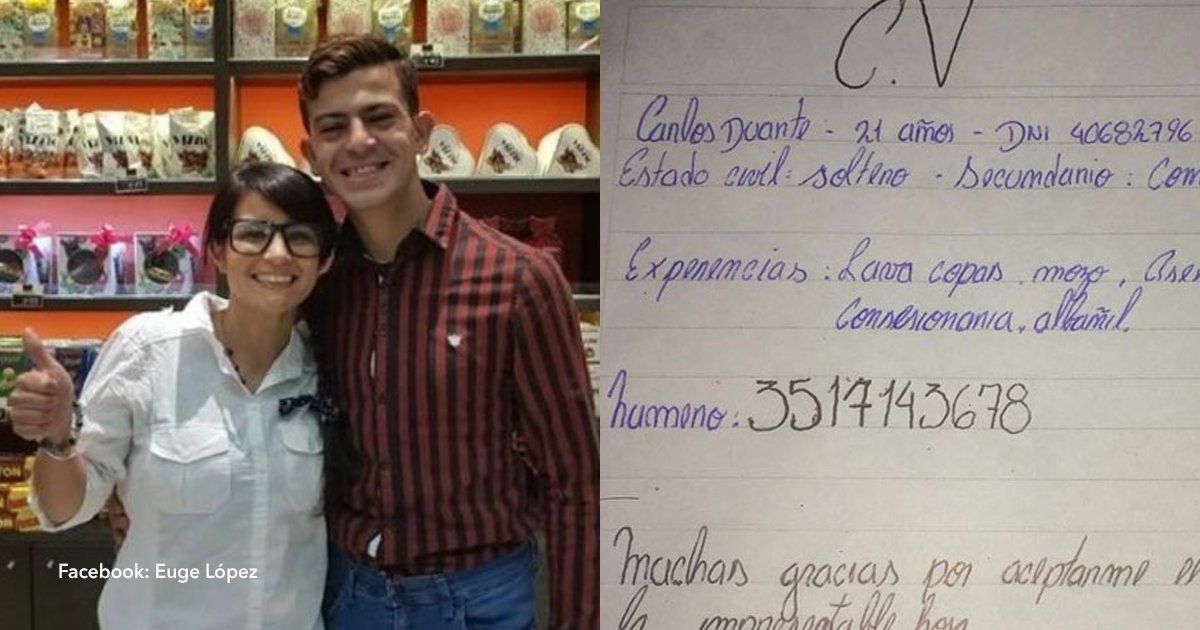 Facebook: Euge López
C.V
Carlos Duante - 21 años - DNI 40682796
Estado civil: soltero - Secundario: Com
Experiencias: Lava copas, mozo, Ase
Consesionaria, albañil.
humero: 3517143678
Muchas gracias por aceptarme e
la impresentable hoy